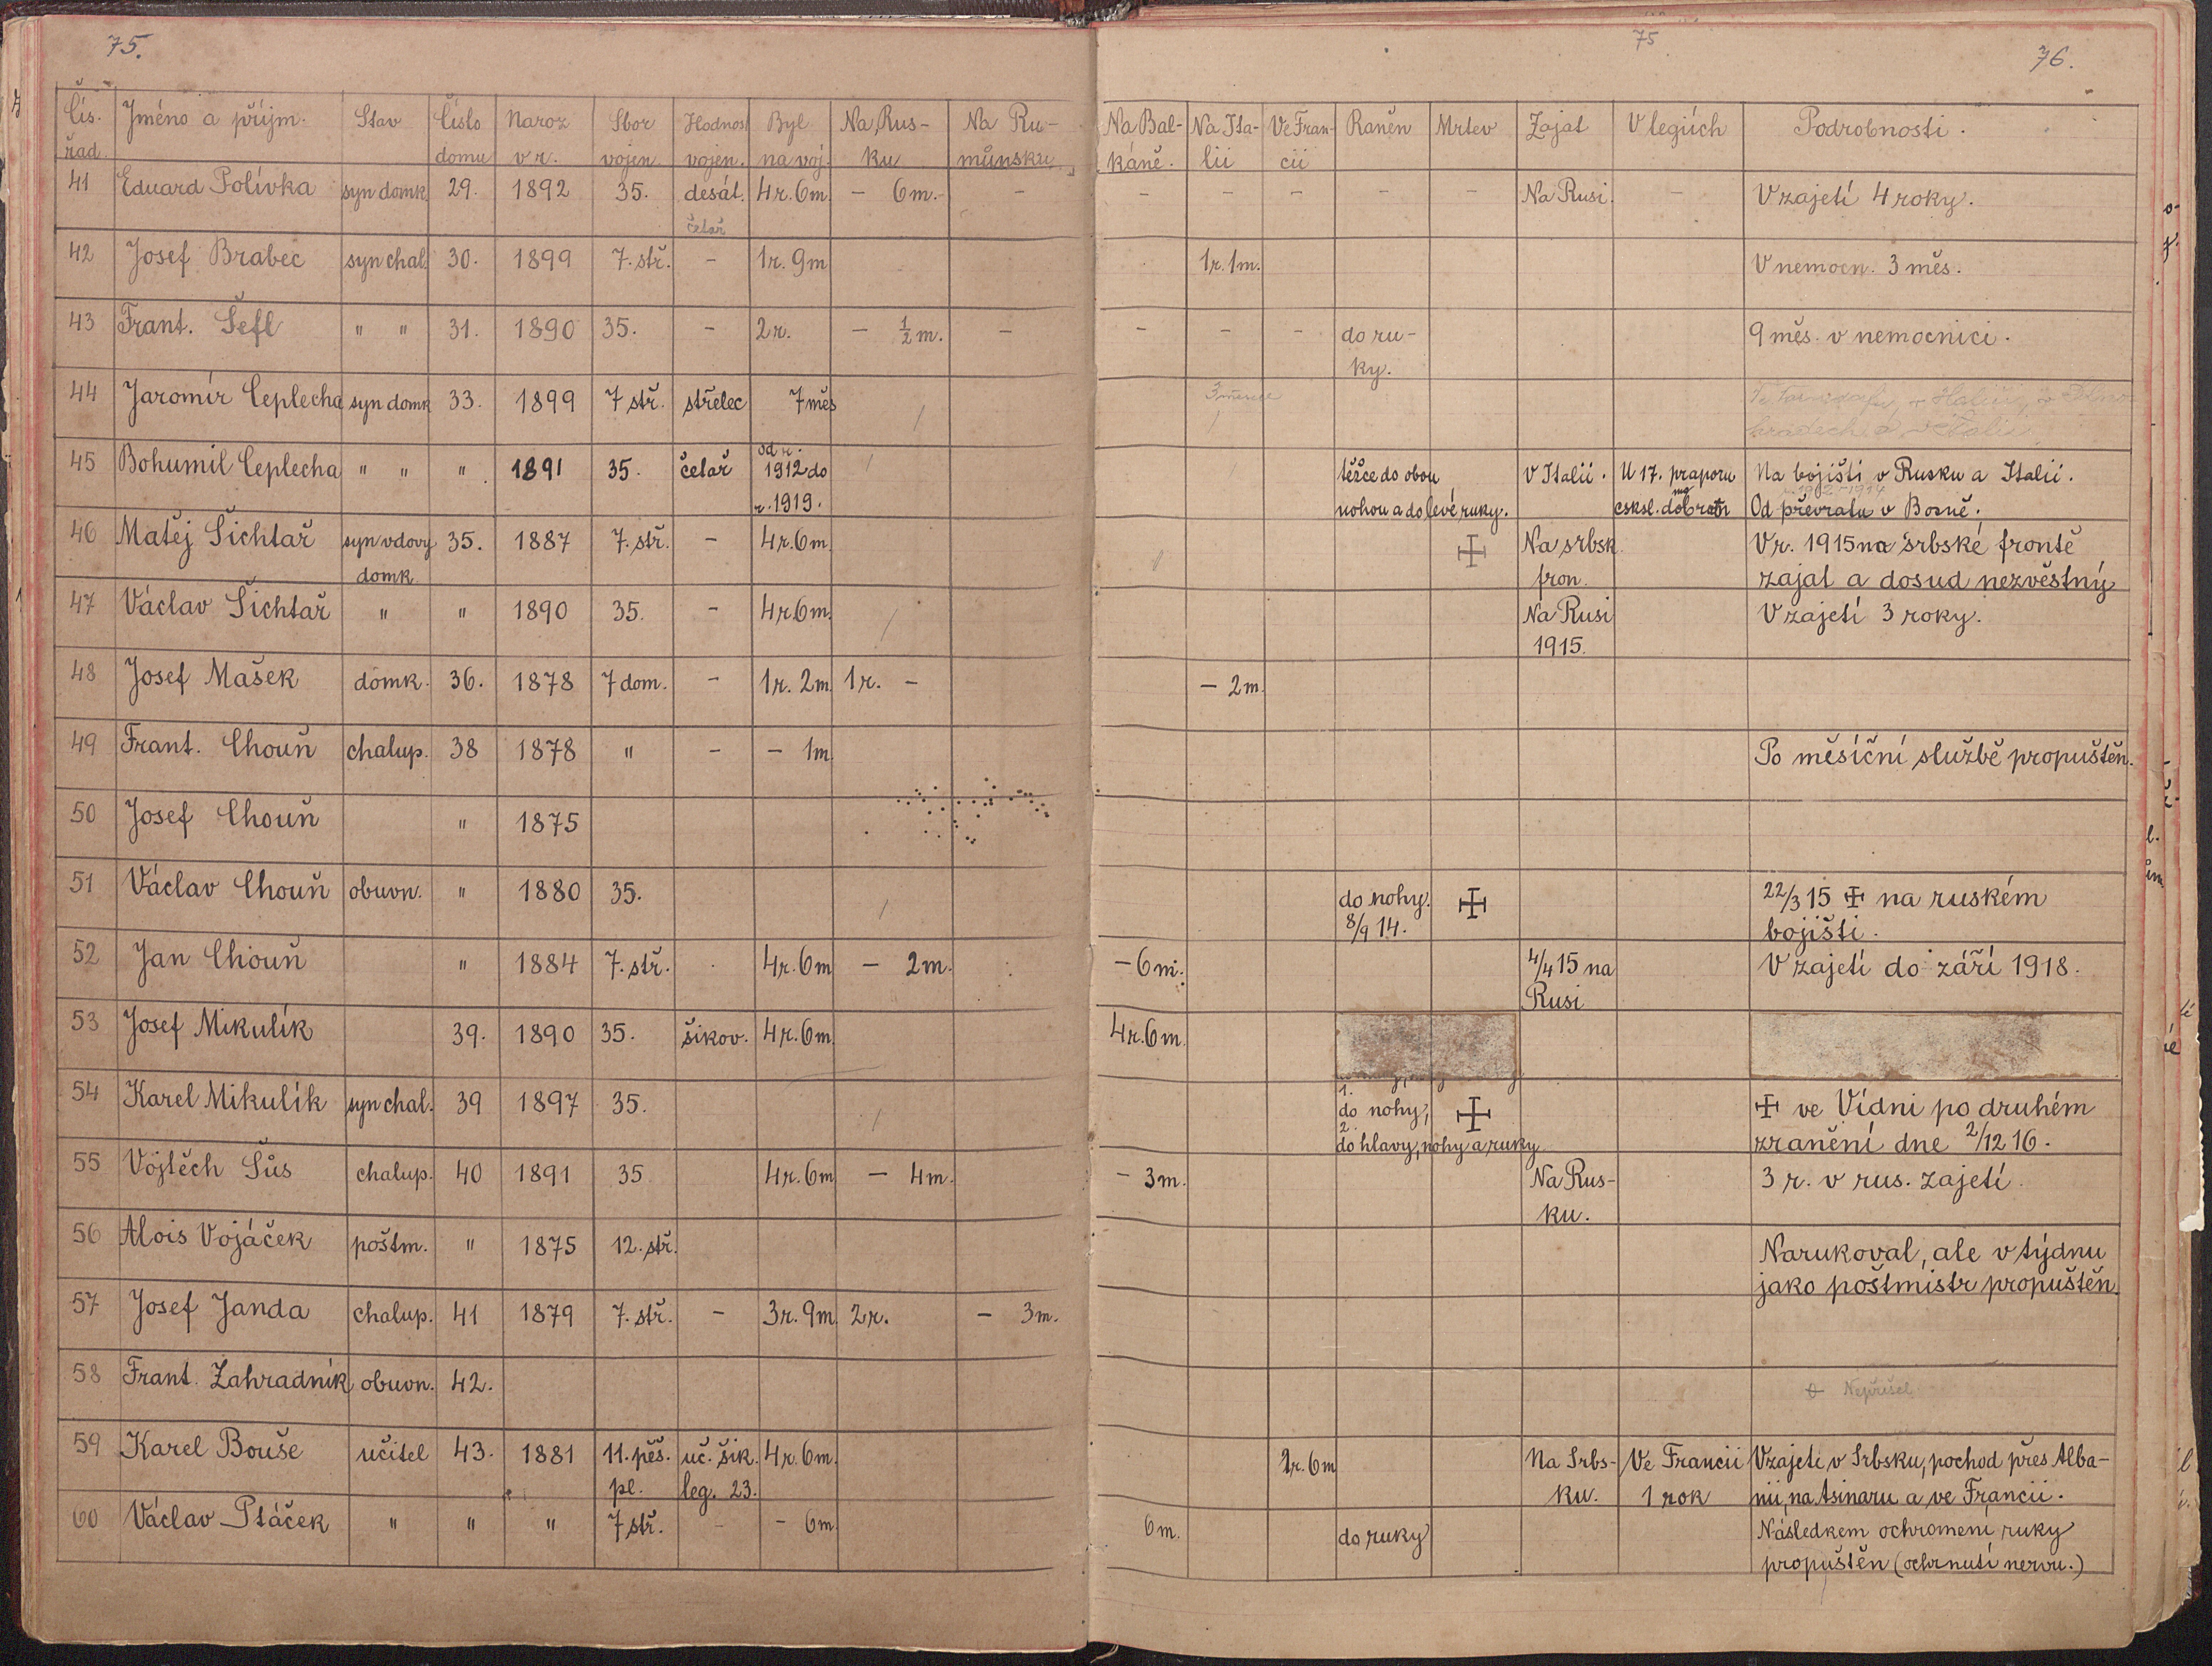 75.
75
76.
Čís. Jméno a příjm. Stav Číslo Naroz Sbor Hodnos Byl Na Rus- Na Ru- Na Bal- Na Ita- Ve Fran- Raněn Mrtev Zajat V legiích Podrobnosti.
řad. domu v r. vojen. vojen. na voj. ku můnsku káně. lii cii
41 Eduard Polívka syn domk. 29. 1892 35. desát. 4r. 6m. - 6m. - - - - - - Na Rusi. - V zajetí 4 roky.
četař
42 Josef Brabec syn chal. 30. 1899 7. stř. - 1r. 9m 1r. 1m. V nemocn. 3 měs.
43 Frant. Šefl " " 31. 1890 35. - 2r. - 1/2 m. - - - - do ru- 9 měs. v nemocnici.
ky.
44 Jaromír Ceplecha syn domk 33. 1899 7 stř. střelec 7 měs 3 měsíce
45 Bohumil Ceplecha " " " 1891 35. četař od r. těžce do obou v Italii. U 17. praporu Na bojišti v Rusku a Italii.
1912 do 1912-1914
r. 1919. nohou a do levé ruky. csksl. Od převratu v Bosně.
46 Matěj Šichtař syn vdovy 35. 1887 7. stř. - 4r. 6m. ☩ Na srbsk. V r. 1915 na srbské frontě
domk. fron. zajat a dosud nezvěstný
47 Václav Šichtař " " 1890 35. - 4r. 6m. Na Rusi V zajetí 3 roky.
1915.
48 Josef Mašek domk. 36. 1878 7 dom. - 1r. 2m. 1r. - - 2m.
49 Frant. Chouň chalup. 38 1878 " - - 1m. Po měsíční službě propuštěn.
50 Josef Chouň " 1875
51 Václav Chouň obuvn. " 1880 35. do nohy. ☩ 22/3 15 ☩ na ruském
8/9 14. bojišti.
52 Jan Chouň " 1884 7. stř. 4r. 6m - 2m. - 6m. 4/4 15 na V zajetí do září 1918.
Rusi
53 Josef Mikulík 39. 1890 35. šikov. 4r. 6m. 4r. 6m.
54 Karel Mikulík syn chal. 39 1897 35. 1. do nohy, ☩ ☩ ve Vídni po druhém
2. do hlavy, nohy a ruky zranění dne 2/12 16.
55 Vojtěch Šůs chalup. 40 1891 35 4r. 6m - 4m. - 3m. Na Rus- 3 r. v rus. zajetí.
ku.
56 Alois Vojáček poštm. " 1875 12. stř. Narukoval, ale v týdnu
jako poštmistr propuštěn.
57 Josef Janda chalup. 41 1879 7. stř. - 3r. 9m. 2r. - 3m.
58 Frant. Zahradník obuvn. 42. Nepřišel
59 Karel Bouše učitel 43. 1881 11. pěš. uč. šik. 4r. 6m. 6m Na Srbs- Ve Francii V zajetí v Srbsku, pochod přes Alba-
pl. leg. 23. ku. 1 rok nii, na Asinaru a ve Francii.
60 Václav Ptáček " " " 7 stř. - - 6m 6m. do ruky Následkem ochromení ruky
propuštěn (ochrnutí nervu.)